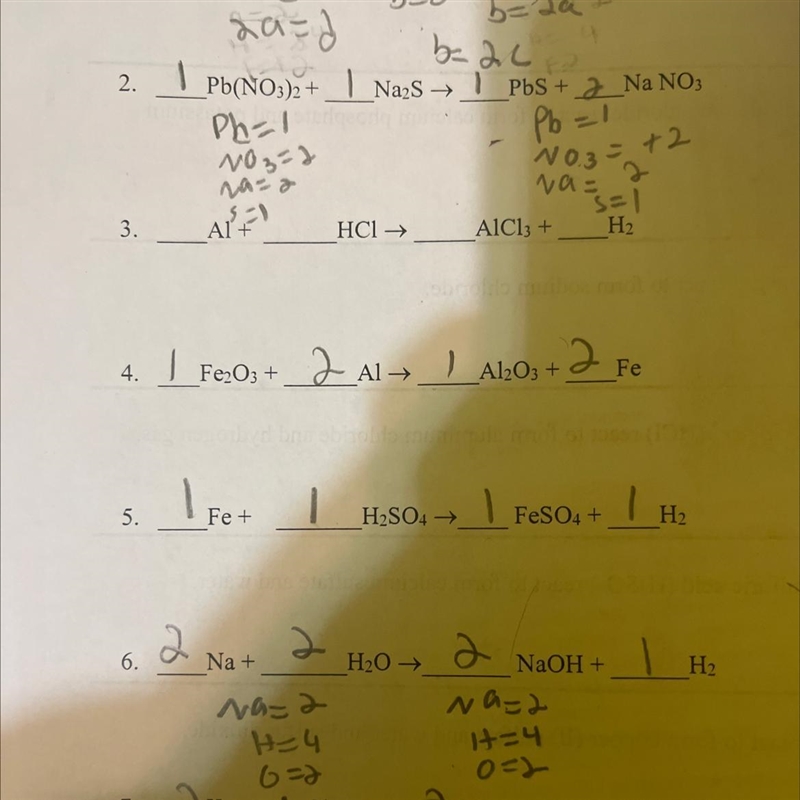 2a=2
b=2a
b=2c
2. 1 Pb(NO3)2 + 1 Na2S → 1 PbS + 2 Na NO3
Pb=1
NO3=2
Na=2
S=1
Pb=1
NO3= +2
Na= 2
S=1
3. ____Al + _____HCl → ____AlCl3 + ___H2
4. 1 Fe2O3 + 2 Al → 1 Al2O3 + 2 Fe
5. 1 Fe + 1 H2SO4 → 1 FeSO4 + 1 H2
6. 2 Na + 2 H2O → 2 NaOH + 1 H2
Na=2
H=4
O=2
Na=2
H=4
O=2